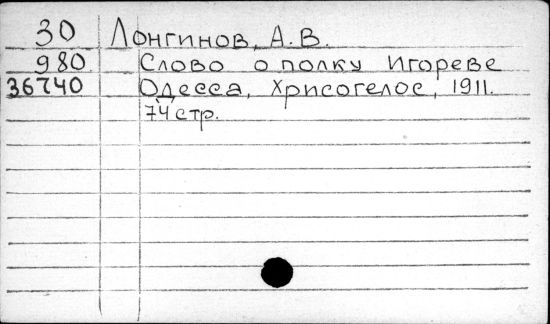 30 Лонгинов, А.В.
980 Слово о полку Игореве
36740 Одесса, Хрисогелос, 1911.
74 стр.